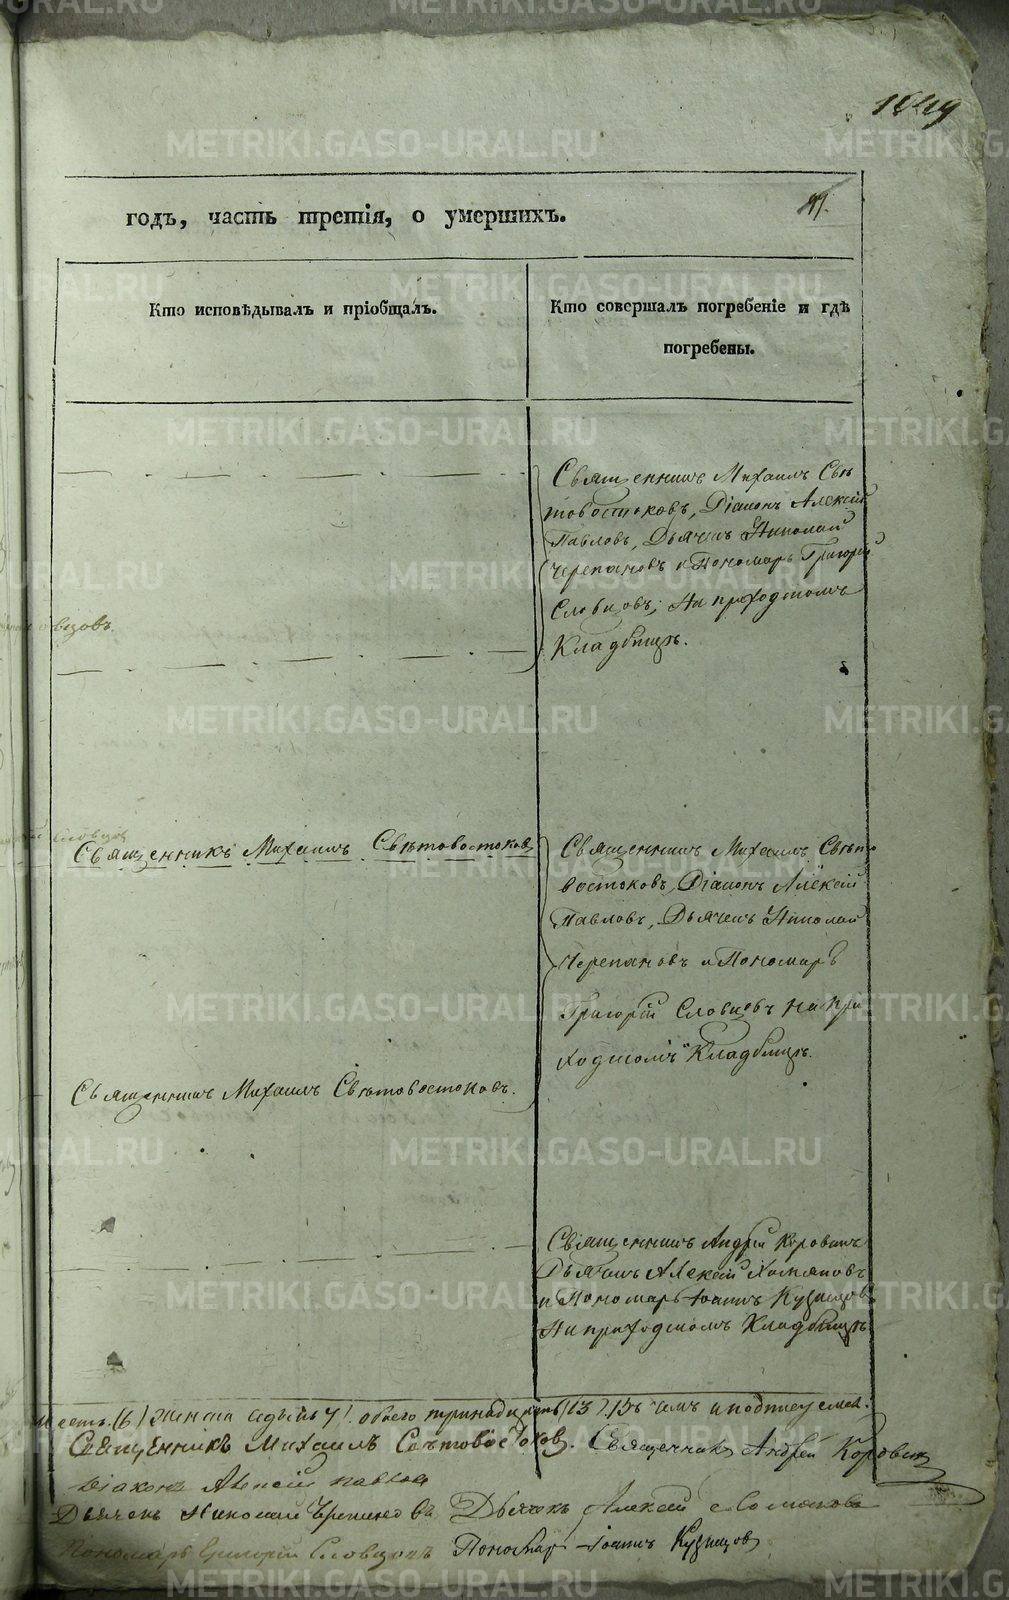 1649
годъ, часть третія, о умершихъ.
Кто исповѣдывалъ и пріобщалъ.
Кто совершалъ погребеніе и гдѣ
погребены.
Священникъ Михаилъ Свѣ
товостоковъ, Діаконъ Алексій
Павловъ, Дьячекъ Николай
Черепановъ и Пономарь Григорій
Словцовъ; На приходскомъ
Кладбищѣ.
Священникъ Михаилъ Свѣтовостоковъ
Священникъ Михаилъ Свѣто
востоковъ, Діаконъ Алексій
Павловъ, Дьячекъ Николай
Черепановъ и Пономарь
Григорій Словцовъ на при
ходскомъ Кладбищѣ.
Священникъ Михаилъ Свѣтовостоковъ.
Священникъ Андрей Коровинъ
Дьячекъ Алексій
и Пономарь Іоаннъ Кузнецовъ
На приходскомъ Кладбищѣ
(6) женска седьмъ 7. обоего тринадцать (13)
Священникъ Михаилъ Свѣтовостоковъ. Священникъ Андрей Коровинъ
Діаконъ Алексій Павловъ
Дьячекъ Николай Черепановъ Дьячекъ Алексій
Пономарь Григорій Словцовъ Пономарь Іоаннъ Кузнецовъ
METRIKI.GASO-URAL.RU